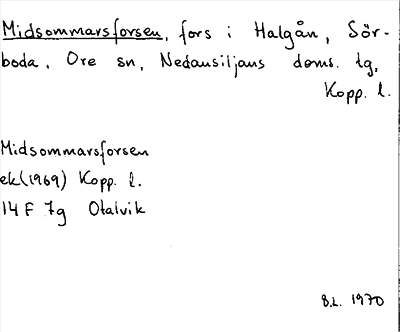 Midsommarsforsen, fors i Halgån, Sör-
boda, Ore sn, Nedansiljans doms. lg,
Kopp. l.
Midsommarsforsen
ek(1969) Kopp. l.
14 F 7g Otalvik
B.L. 1970